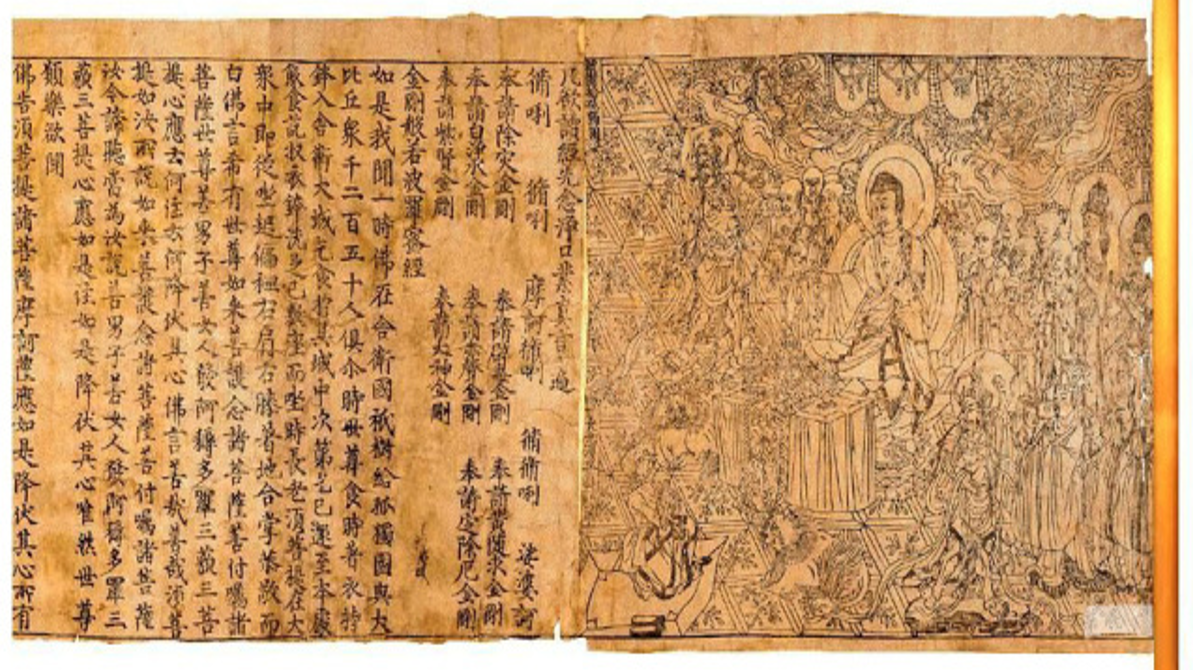 凡欲讀經先念淨口業真言一遍
脩唎 脩唎 摩訶脩唎 脩脩唎 娑婆訶
奉請除灾金剛 奉請辟毒金剛 奉請黃隨求金剛
奉請白淨水金剛 奉請赤聲金剛 奉請定除厄金剛
奉請紫賢金剛 奉請大神金剛
金剛般若波羅蜜經
如是我聞一時佛在舍衛國祇樹給孤獨園與大
比丘眾千二百五十人俱尒時世尊食時著衣持
鉢入舍衛大城乞食於其城中次第乞已還至本處
飯食訖收衣鉢洗足已敷座而坐時長老須菩提在大
眾中即從座起偏袒右肩右膝著地合掌恭敬而
白佛言希有世尊如來善護念諸菩薩善付囑諸
菩薩世尊善男子善女人發阿耨多羅三藐三菩
提心應云何住云何降伏其心佛言善哉善哉須菩
提如汝所說如來善護念諸菩薩善付囑諸菩薩
汝今諦聽當為汝說善男子善女人發阿耨多羅三
藐三菩提心應如是住如是降伏其心唯然世尊
願樂欲聞
佛告須菩提諸菩薩摩訶薩應如是降伏其心所有